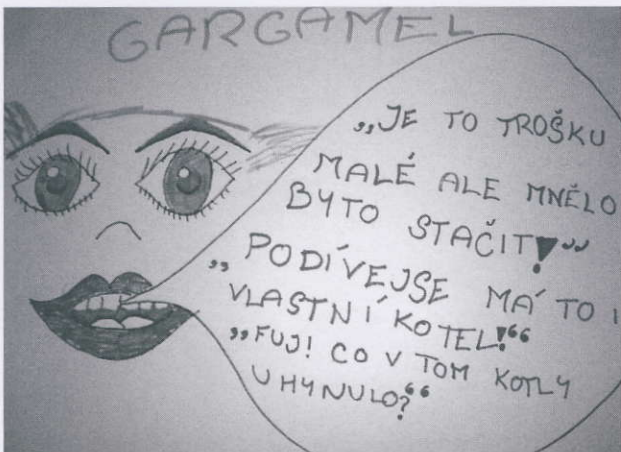 GARGAMEL
„JE TO TROŠKU
MALÉ ALE MNĚLO
BYTO STAČIT!“
„PODÍVEJSE MÁ TO I
VLASTNÍ KOTEL!“
„FUJ! CO V TOM KOTLY
UHYNULO?“